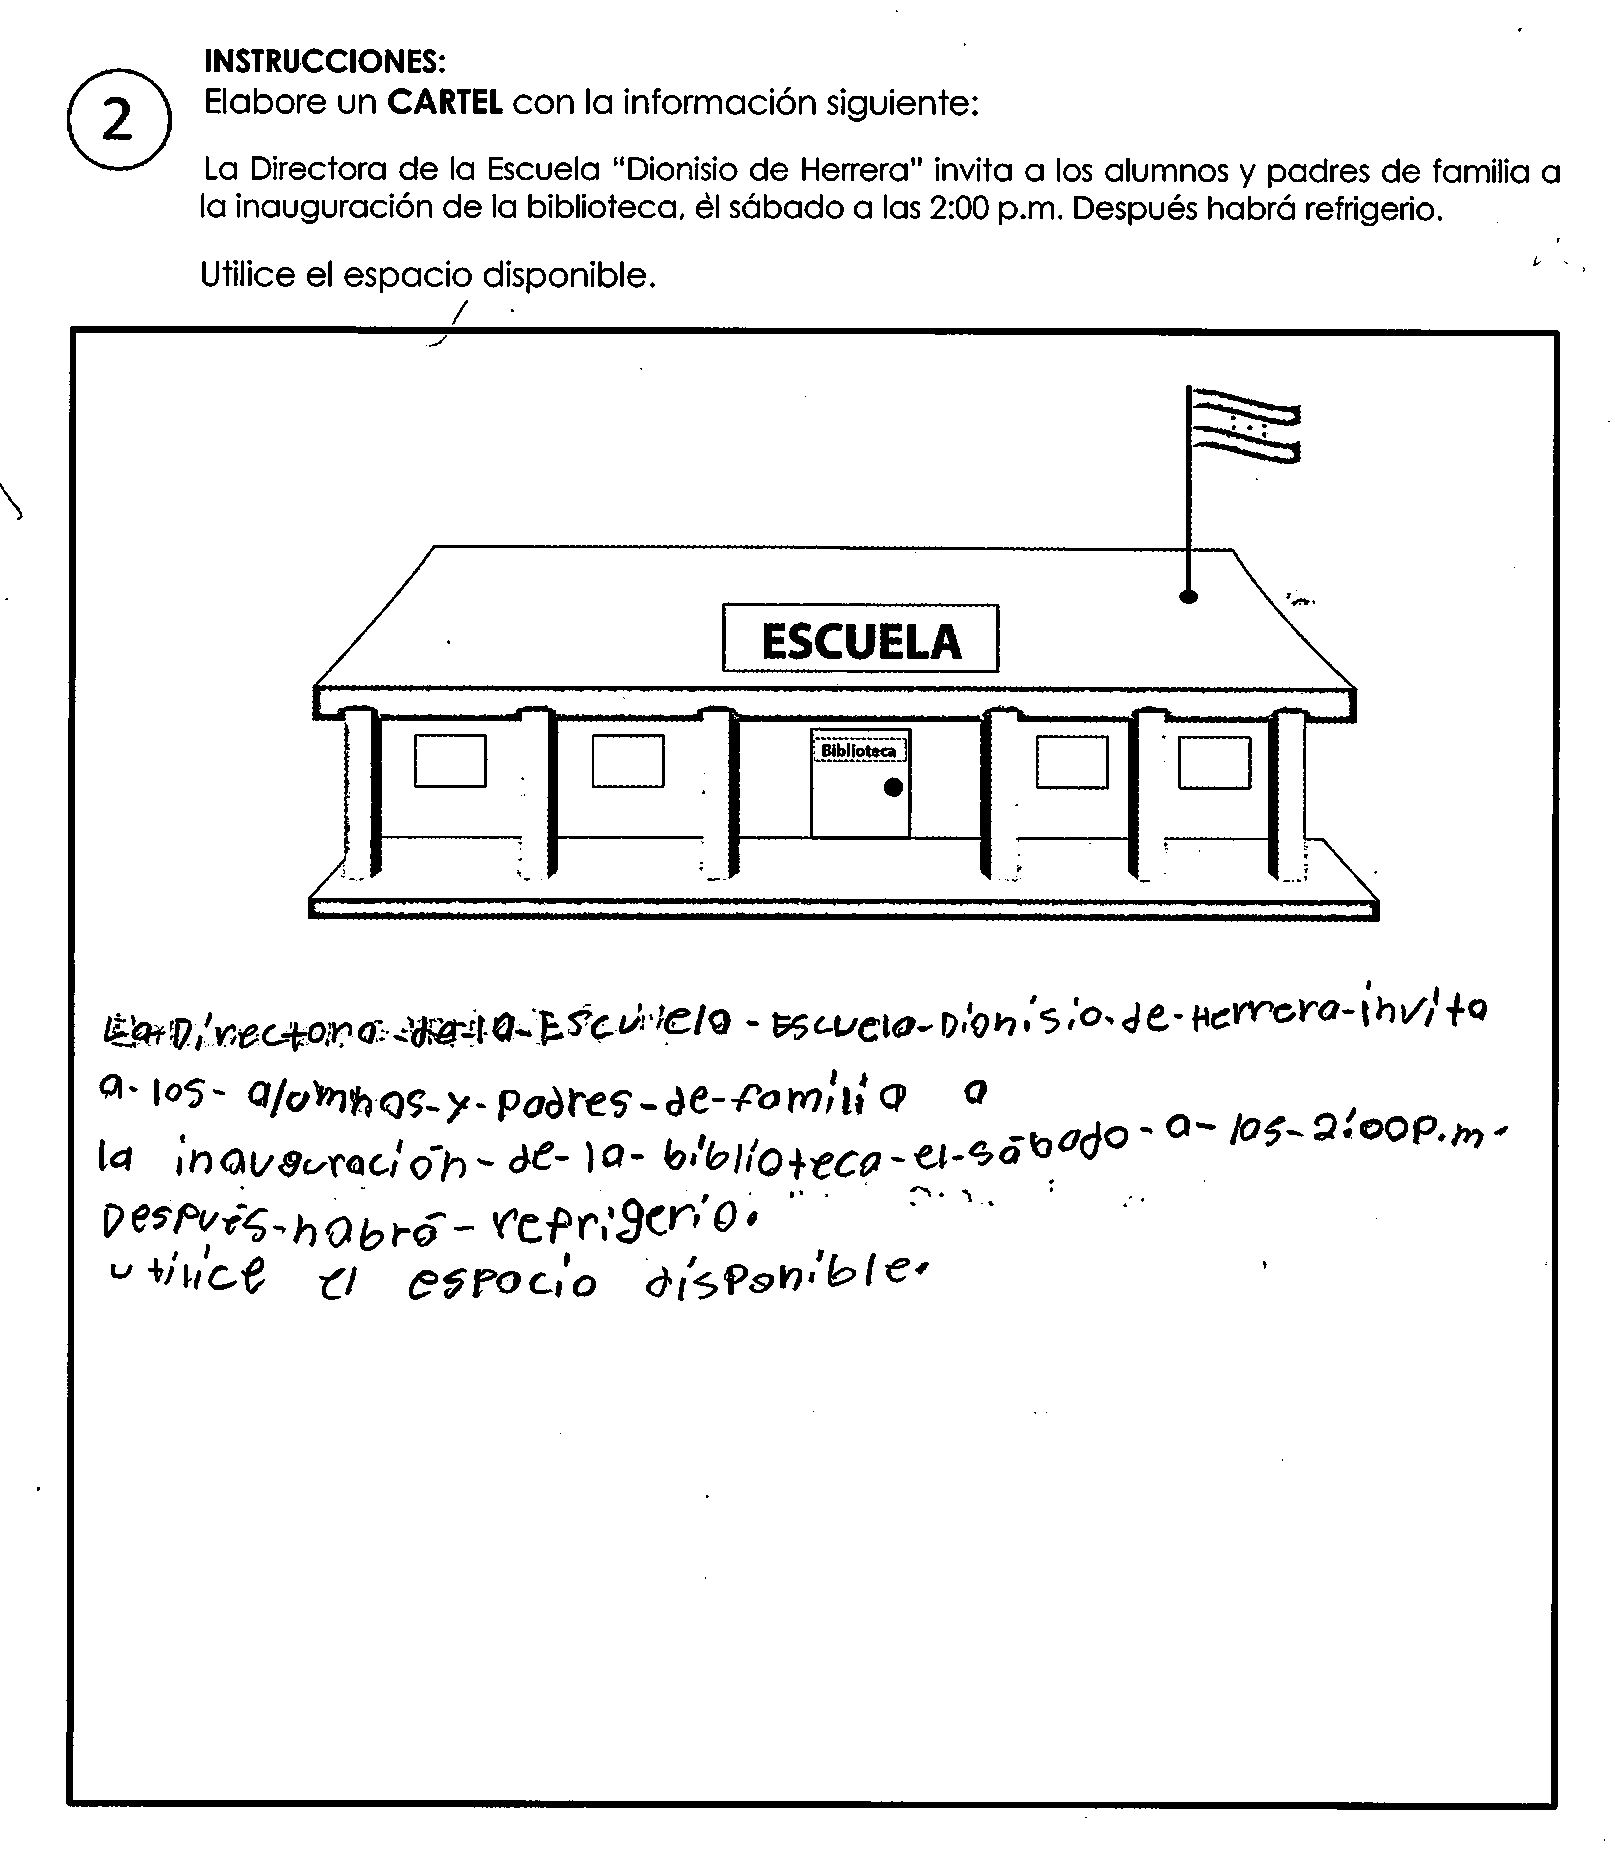 INSTRUCCIONES:
2
Elabore un CARTEL con la información siguiente:
La Directora de la Escuela "Dionisio de Herrera" invita a los alumnos y padres de familia a
la inauguración de la biblioteca, èl sábado a las 2:00 p.m. Después habrá refrigerio.
Utilice el espacio disponible.
ESCUELA
Biblioteca
La Directora de la Escuela - Escuela - Dionisio - de - Herrera - invita
a - los - alomnos - y - padres - de - familia a
la inauguración - de - la - biblioteca - el - sábado - a - las - 2:00 P.m.
Después - habrá - refrigerio.
utilice el espacio disponible.